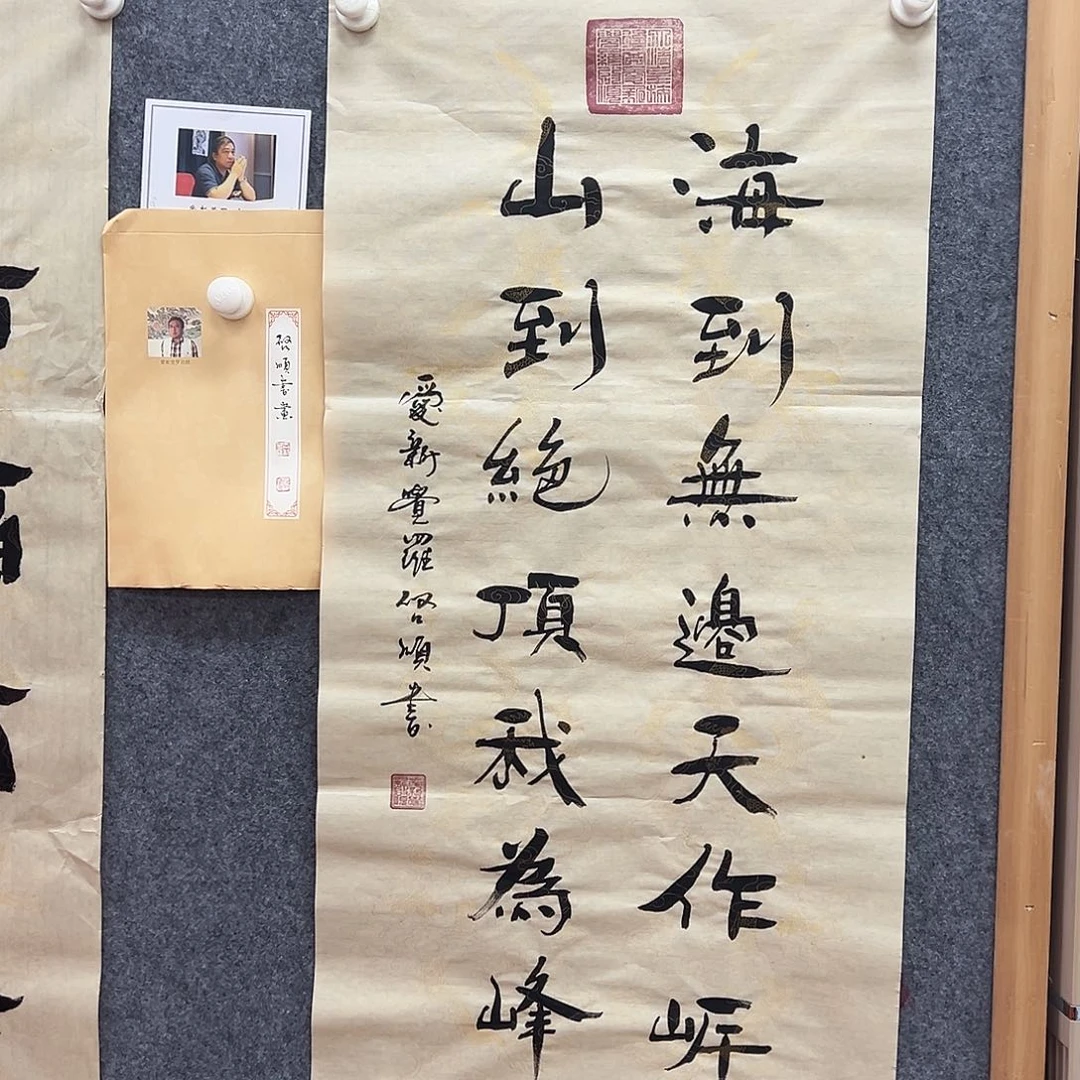 海到無邊天作岸
山到絕頂我為峰
愛新覺羅啓順書
啓順書畫